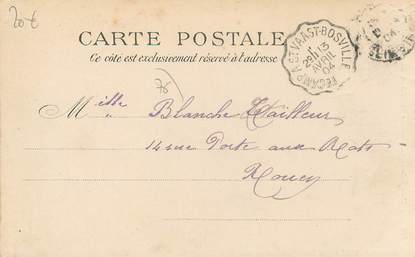 20 €
CARTE POSTALE
Ce côté est exclusivement réservé à l'adresse
FECAMP A ST VAAST-BOSVILLE
2E
13
AVRIL
04
70
Mlle Blanche Tailleur
14 rue Porte aux Rats
Rouen